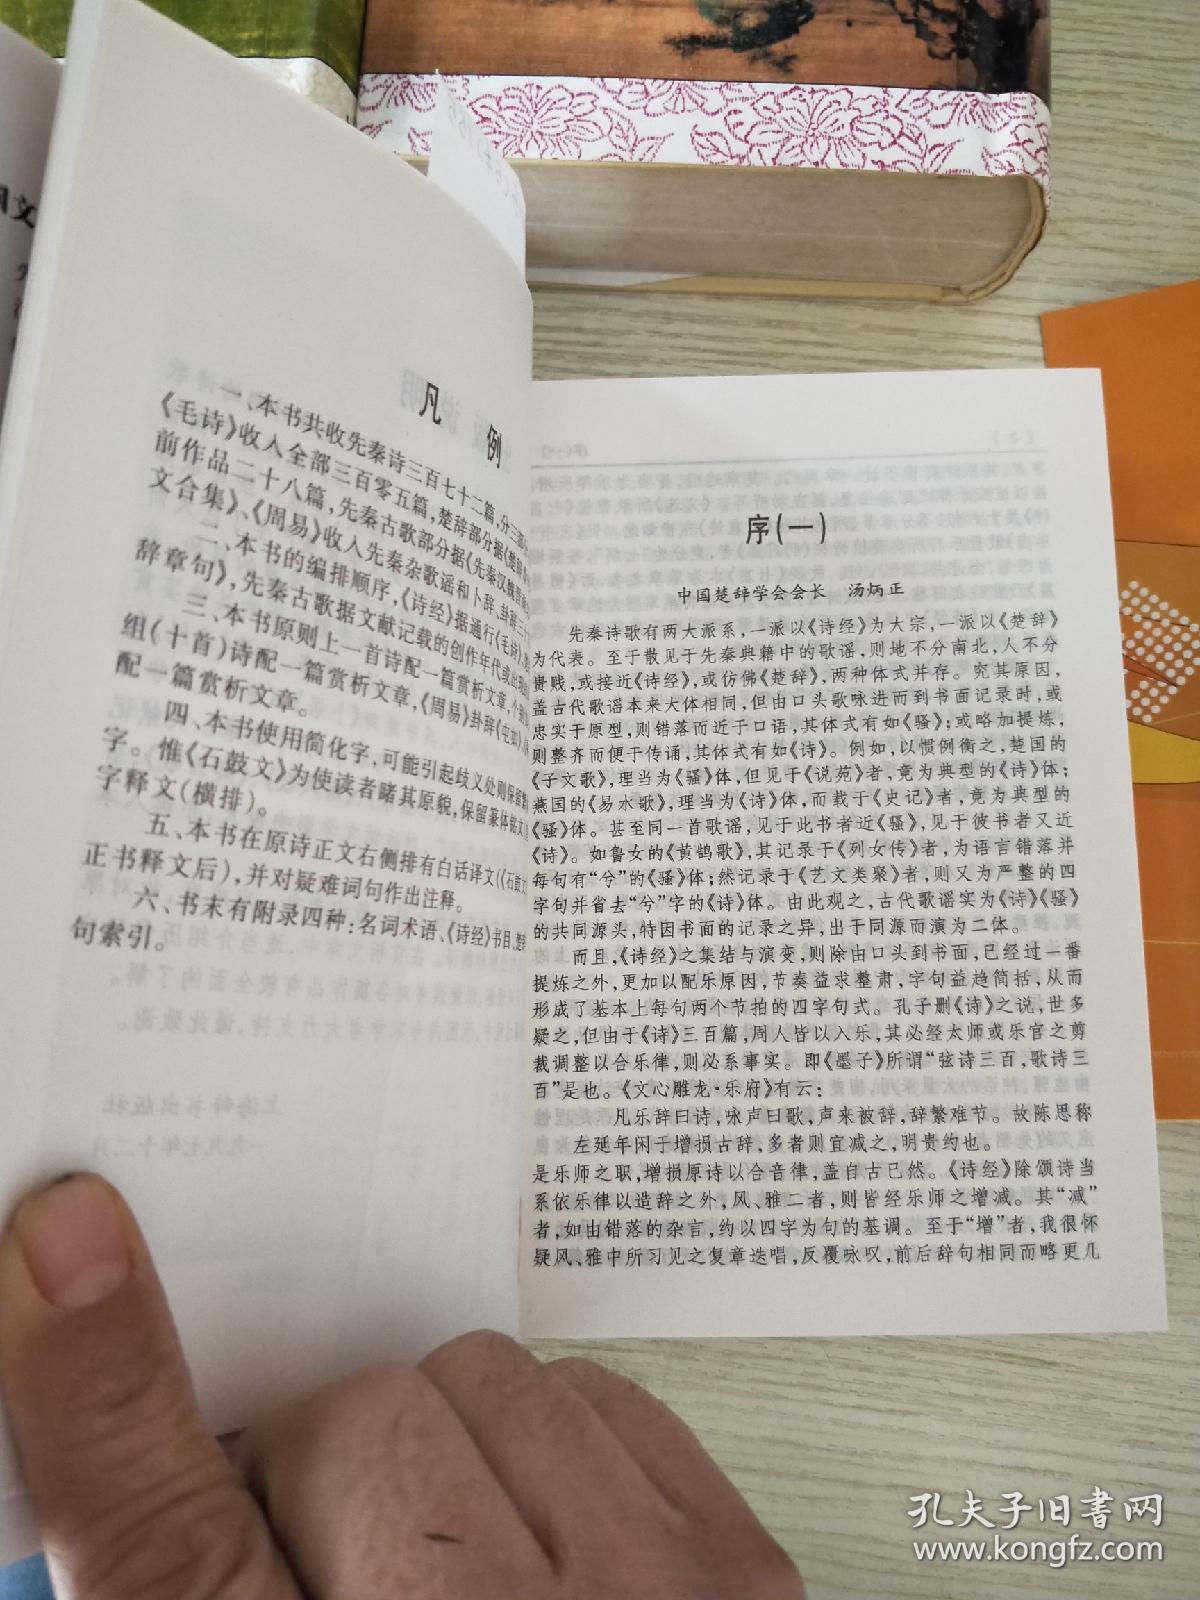 凡 例
一、本书共收先秦诗三百七十二篇,分三部
《毛诗》收入全部三百零五篇,楚辞部分据《楚辞
前作品二十八篇,先秦古歌部分据《先秦汉魏晋
文合集》、《周易》收入先秦杂歌谣和卜辞、卦辞三十
二、本书的编排顺序,《诗经》据通行《毛诗》,
辞章句》,先秦古歌据文献记载的创作年代或出现
三、本书原则上一首诗配一篇赏析文章,个别
组(十首)诗配一篇赏析文章,《周易》卦辞《屯如》
配一篇赏析文章。
四、本书使用简化字,可能引起歧义处则保留繁
字。惟《石鼓文》为使读者睹其原貌,保留篆体铭文
字释文(横排)。
五、本书在原诗正文右侧排有白话译文(《石鼓文
正书释文后),并对疑难词句作出注释。
六、书末有附录四种:名词术语、《诗经》书目、楚
句索引。
序(一)
中国楚辞学会会长 汤炳正
先秦诗歌有两大派系,一派以《诗经》为大宗,一派以《楚辞》
为代表。至于散见于先秦典籍中的歌谣,则地不分南北,人不分
贵贱,或接近《诗经》,或仿佛《楚辞》,两种体式并存。究其原因,
盖古代歌谣本来大体相同,但由口头歌咏进而到书面记录时,或
忠实于原型,则错落而近于口语,其体式有如《骚》;或略加提炼,
则整齐而便于传诵,其体式有如《诗》。例如,以惯例衡之,楚国的
《子文歌》,理当为《骚》体,但见于《说苑》者,竟为典型的《诗》体;
燕国的《易水歌》,理当为《诗》体,而载于《史记》者,竟为典型的
《骚》体。甚至同一首歌谣,见于此书者近《骚》,见于彼书者又近
《诗》。如鲁女的《黄鹤歌》,其记录于《列女传》者,为语言错落并
每句有“兮”的《骚》体;然记录于《艺文类聚》者,则又为严整的四
字句并省去“兮”字的《诗》体。由此观之,古代歌谣实为《诗》《骚》
的共同源头,特因书面的记录之异,出于同源而演为二体。
而且,《诗经》之集结与演变,则除由口头到书面,已经过一番
提炼之外,更加以配乐原因,节奏益求整肃,字句益趋简括,从而
形成了基本上每句两个节拍的四字句式。孔子删《诗》之说,世多
疑之,但由于《诗》三百篇,周人皆以入乐,其必经太师或乐官之剪
裁调整以合乐律,则必系事实。即《墨子》所谓“弦诗三百,歌诗三
百”是也。《文心雕龙·乐府》有云:
凡乐辞曰诗,咏声曰歌,声来被辞,辞繁难节。故陈思称
左延年闲于增损古辞,多者则宜减之,明贵约也。
是乐师之职,增损原诗以合音律,盖自古已然。《诗经》除颂诗当
系依乐律以造辞之外,风、雅二者,则皆经乐师之增减。其“减”
者,如由错落的杂言,约以四字为句的基调。至于“增”者,我很怀
疑风、雅中所习见之复章迭唱,反覆咏叹,前后辞句相同而略更几
孔夫子旧书网
www.kongfz.com